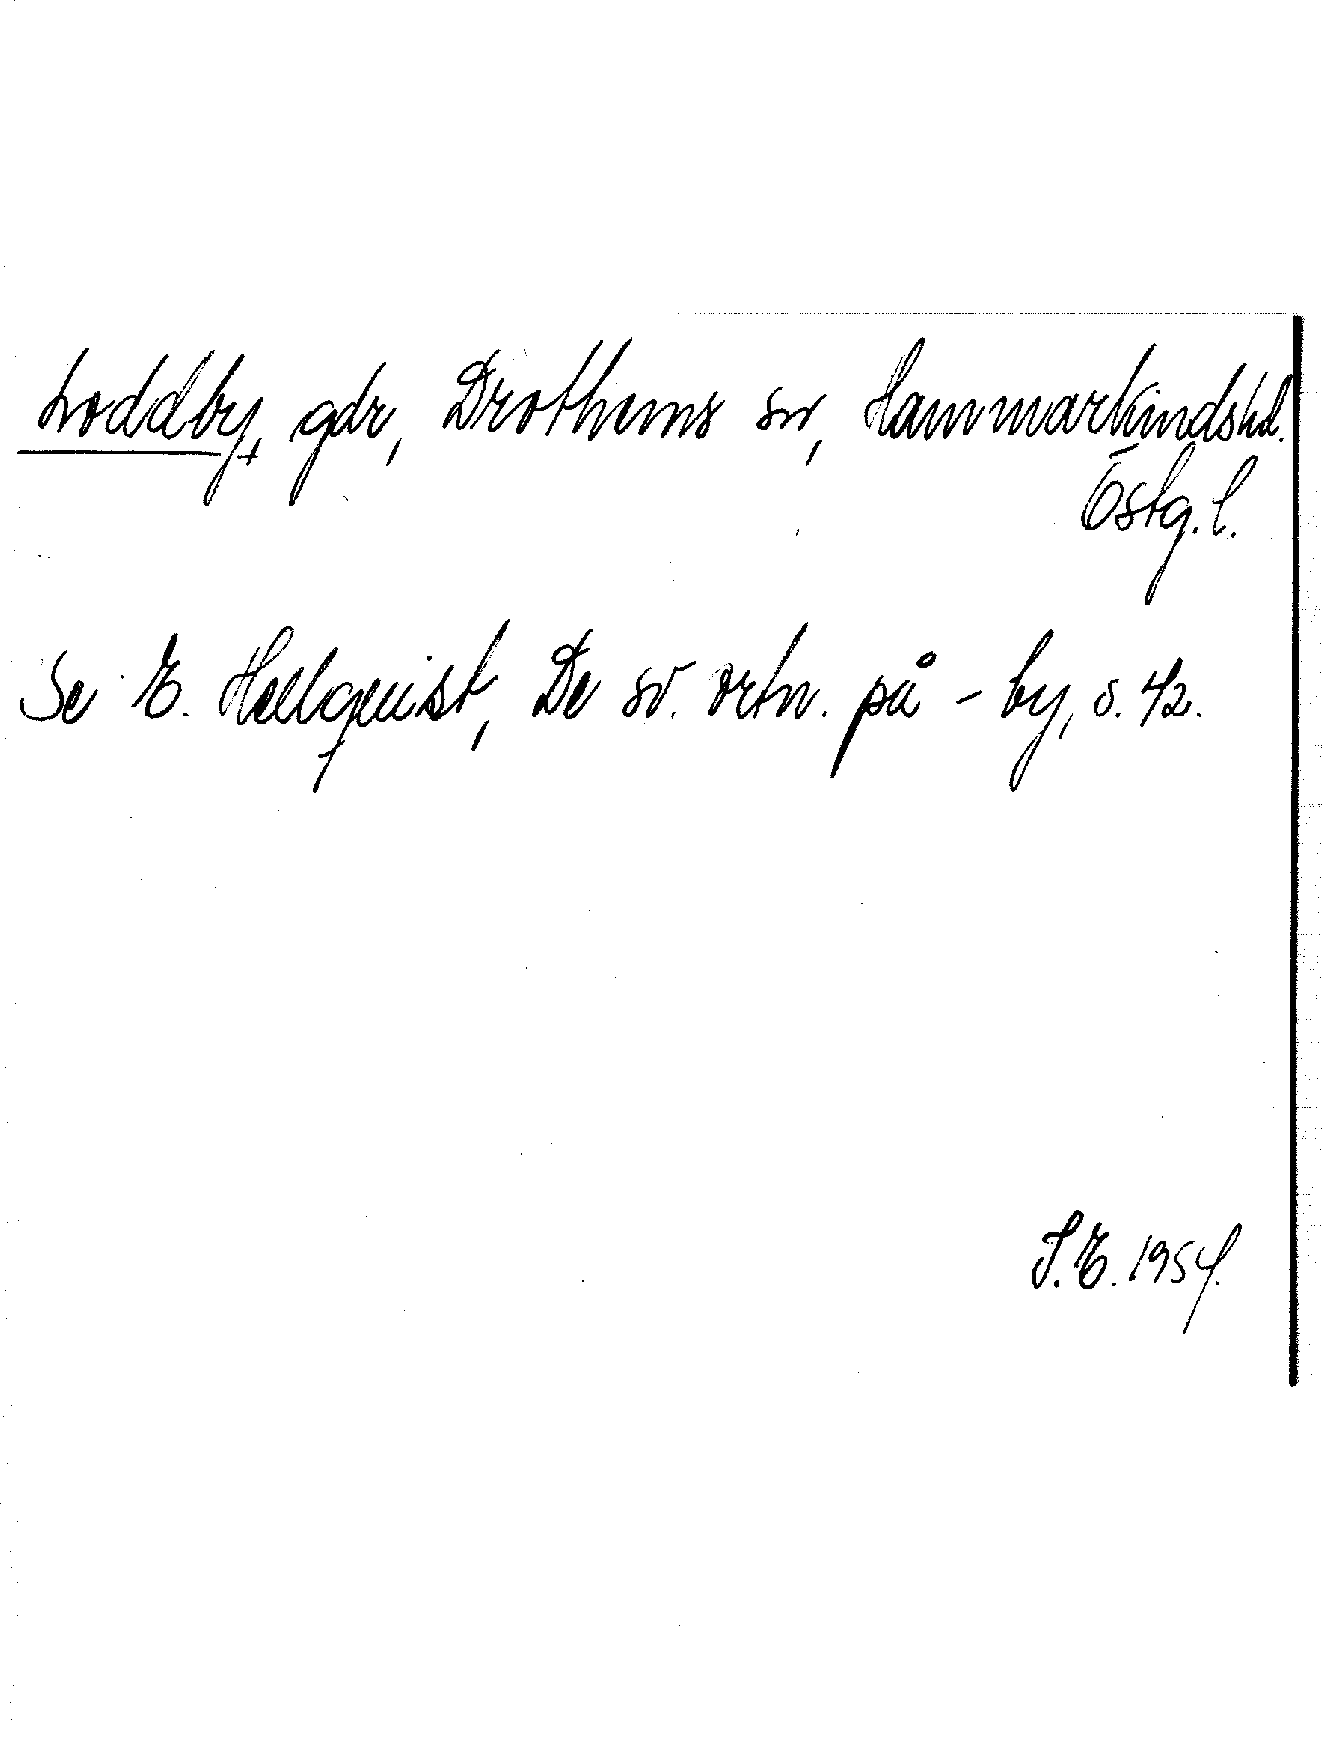 Loddby, gdr, Drothems sn, Hammarkindshd.
Östg.l.
Se E. Hellquist, De sv. ortn. på -by, s. 42.
S.E. 1954.